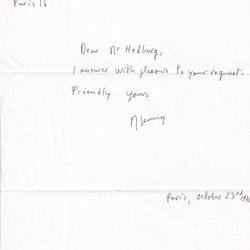 Paris 16
Dear Mr Hedborg,
I answer with pleasure to your request.
Friendly yours
Paris, October 23rd